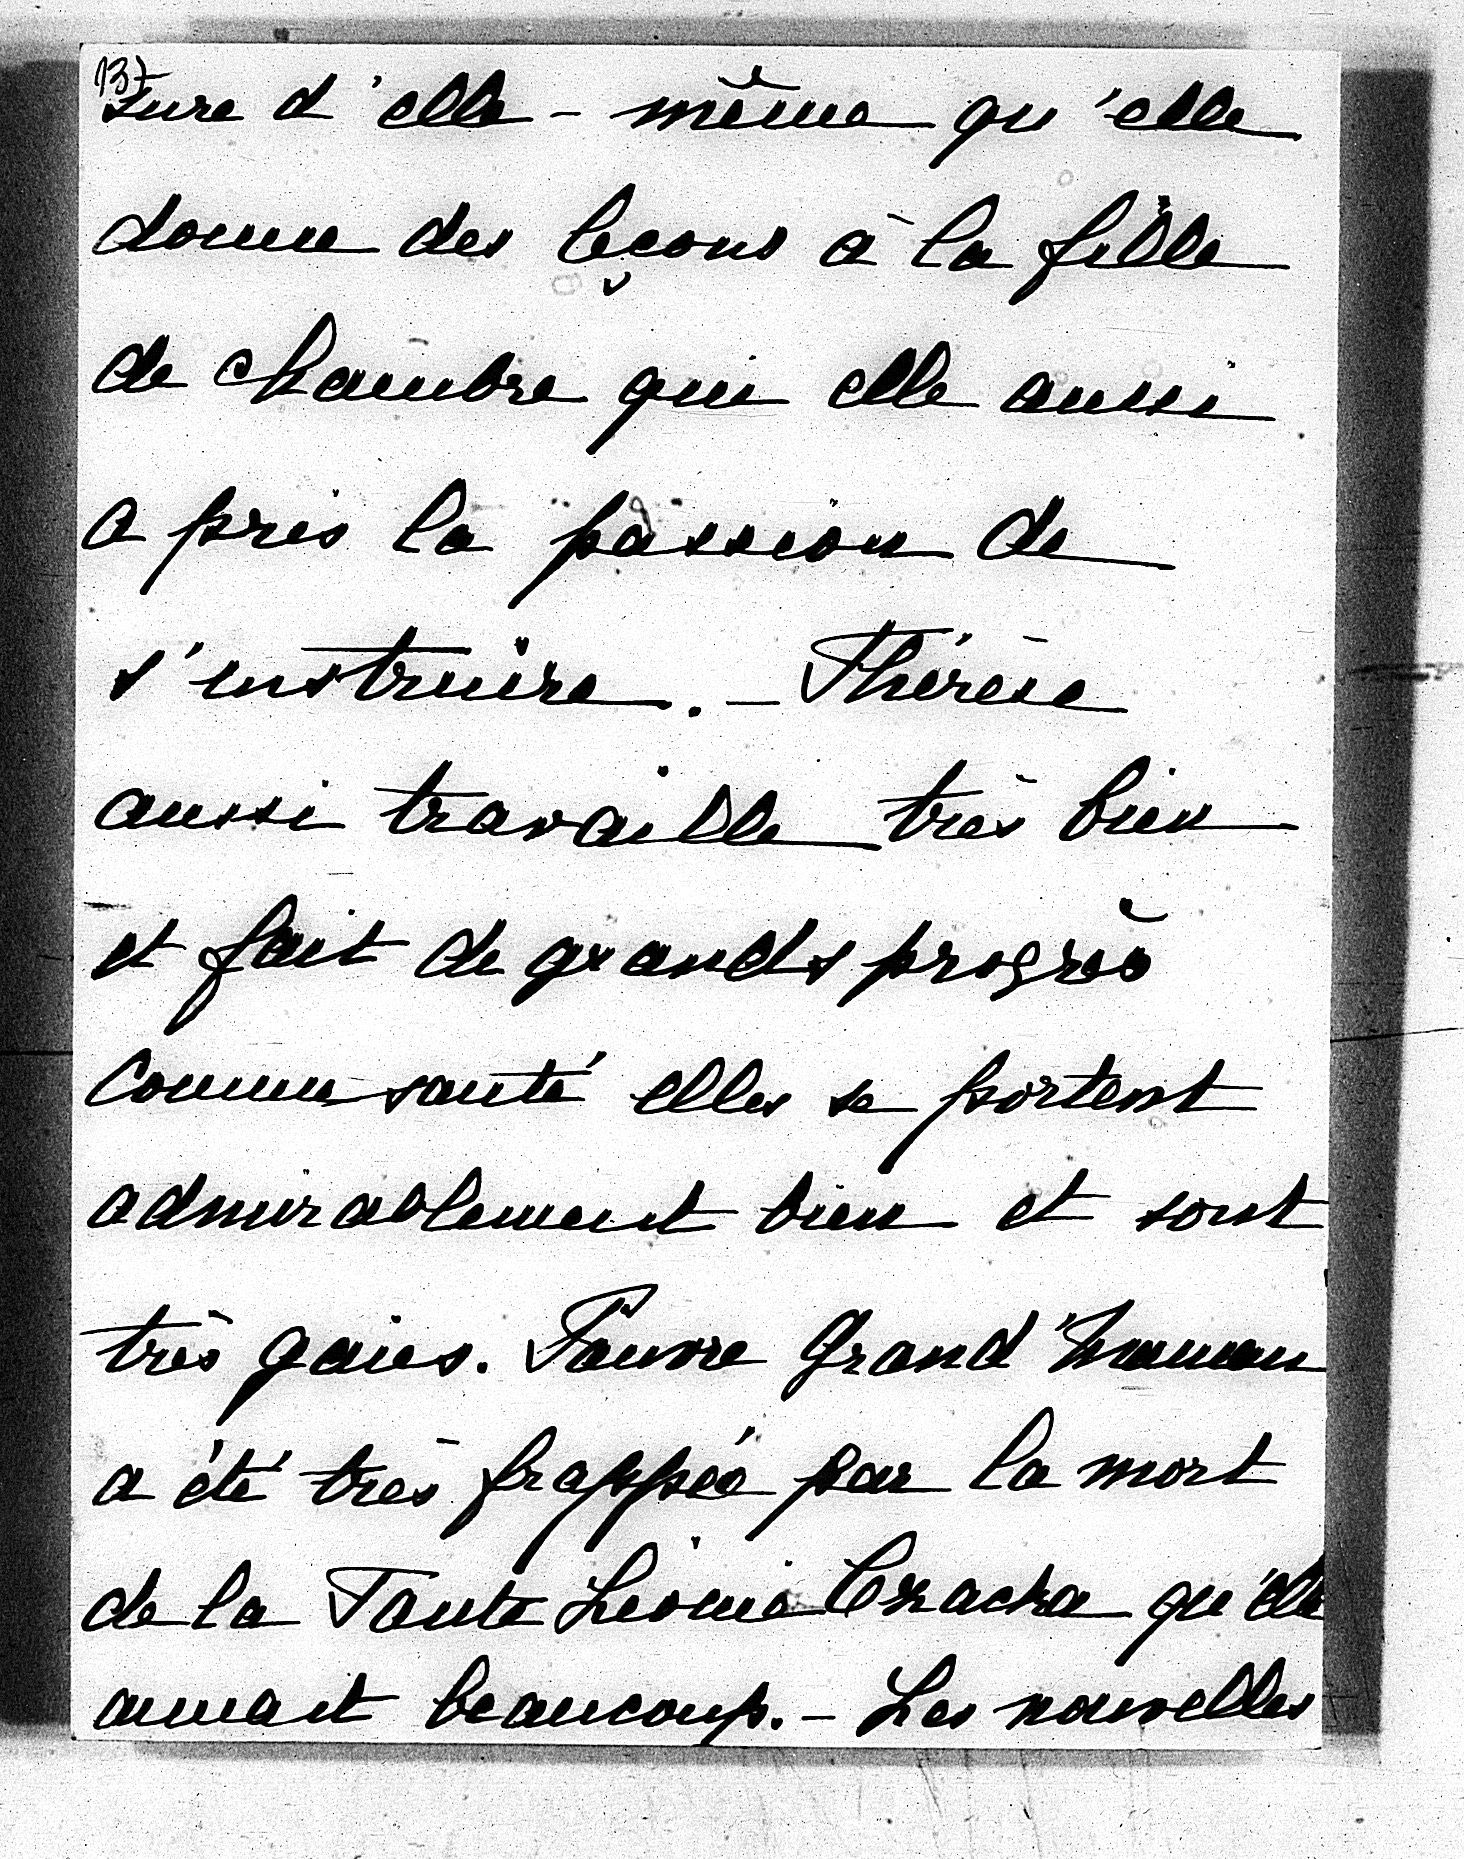 137
sure d'elle-même qu'elle
donne des leçons à la fille
de chambre qui elle aussi
a pris la passion de
s'instruire. — Thérèse
aussi travaille très bien
et fait de grands progrès
Comme santé elles se portent
admirablement bien et sont
très gaies. Pauvre Grand'maman
a été très frappée par la mort
de la Tante Léonie Czacka qu'elle
aimait beaucoup. — Les nouvelles